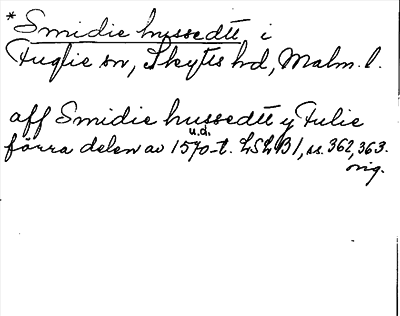 *Smidie hussedtt i
Fuglie sn, Skytts hd, Malm. l.
aff Smidie hussedtt y Fulie
u.d.
förra delen av 1570-t. LSLB1, ss. 362, 363.
orig.